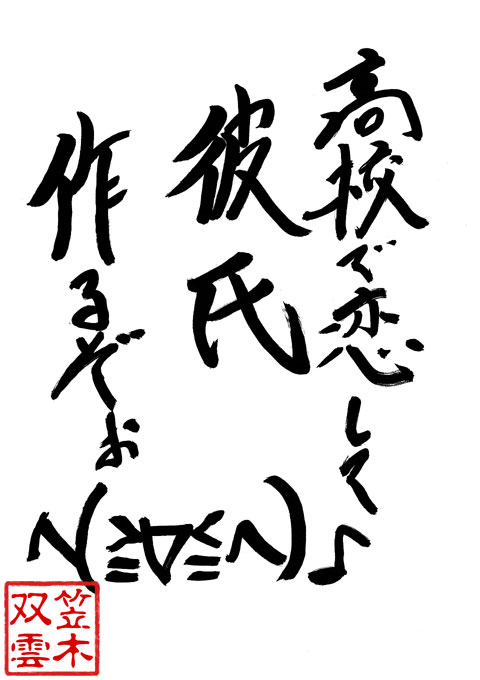 高校で恋して♪
彼氏
作るぞぉ
ヘ(≧∀≦ヘ)
笠木
双雲